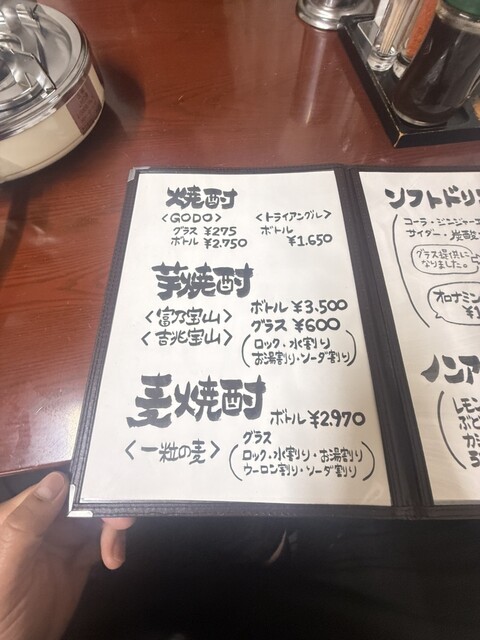 焼酎
〈GODO〉
グラス ¥275
ボトル ¥2.750
〈トライアングル〉
ボトル
¥1.650
芋焼酎
〈富乃宝山〉
〈吉兆宝山〉
ボトル ¥3.500
グラス ¥600
(ロック・水割り
お湯割り・ソーダ割り)
麦焼酎
〈一粒の麦〉
ボトル ¥2.970
グラス
(ロック・水割り・お湯割り
ウーロン割り・ソーダ割り)
ソフトドリ
コーラ・ジンジャー
サイダー・炭酸
グラス提供に
なりました。
オロナミン
ノンア
レモン
ぶど
カシ